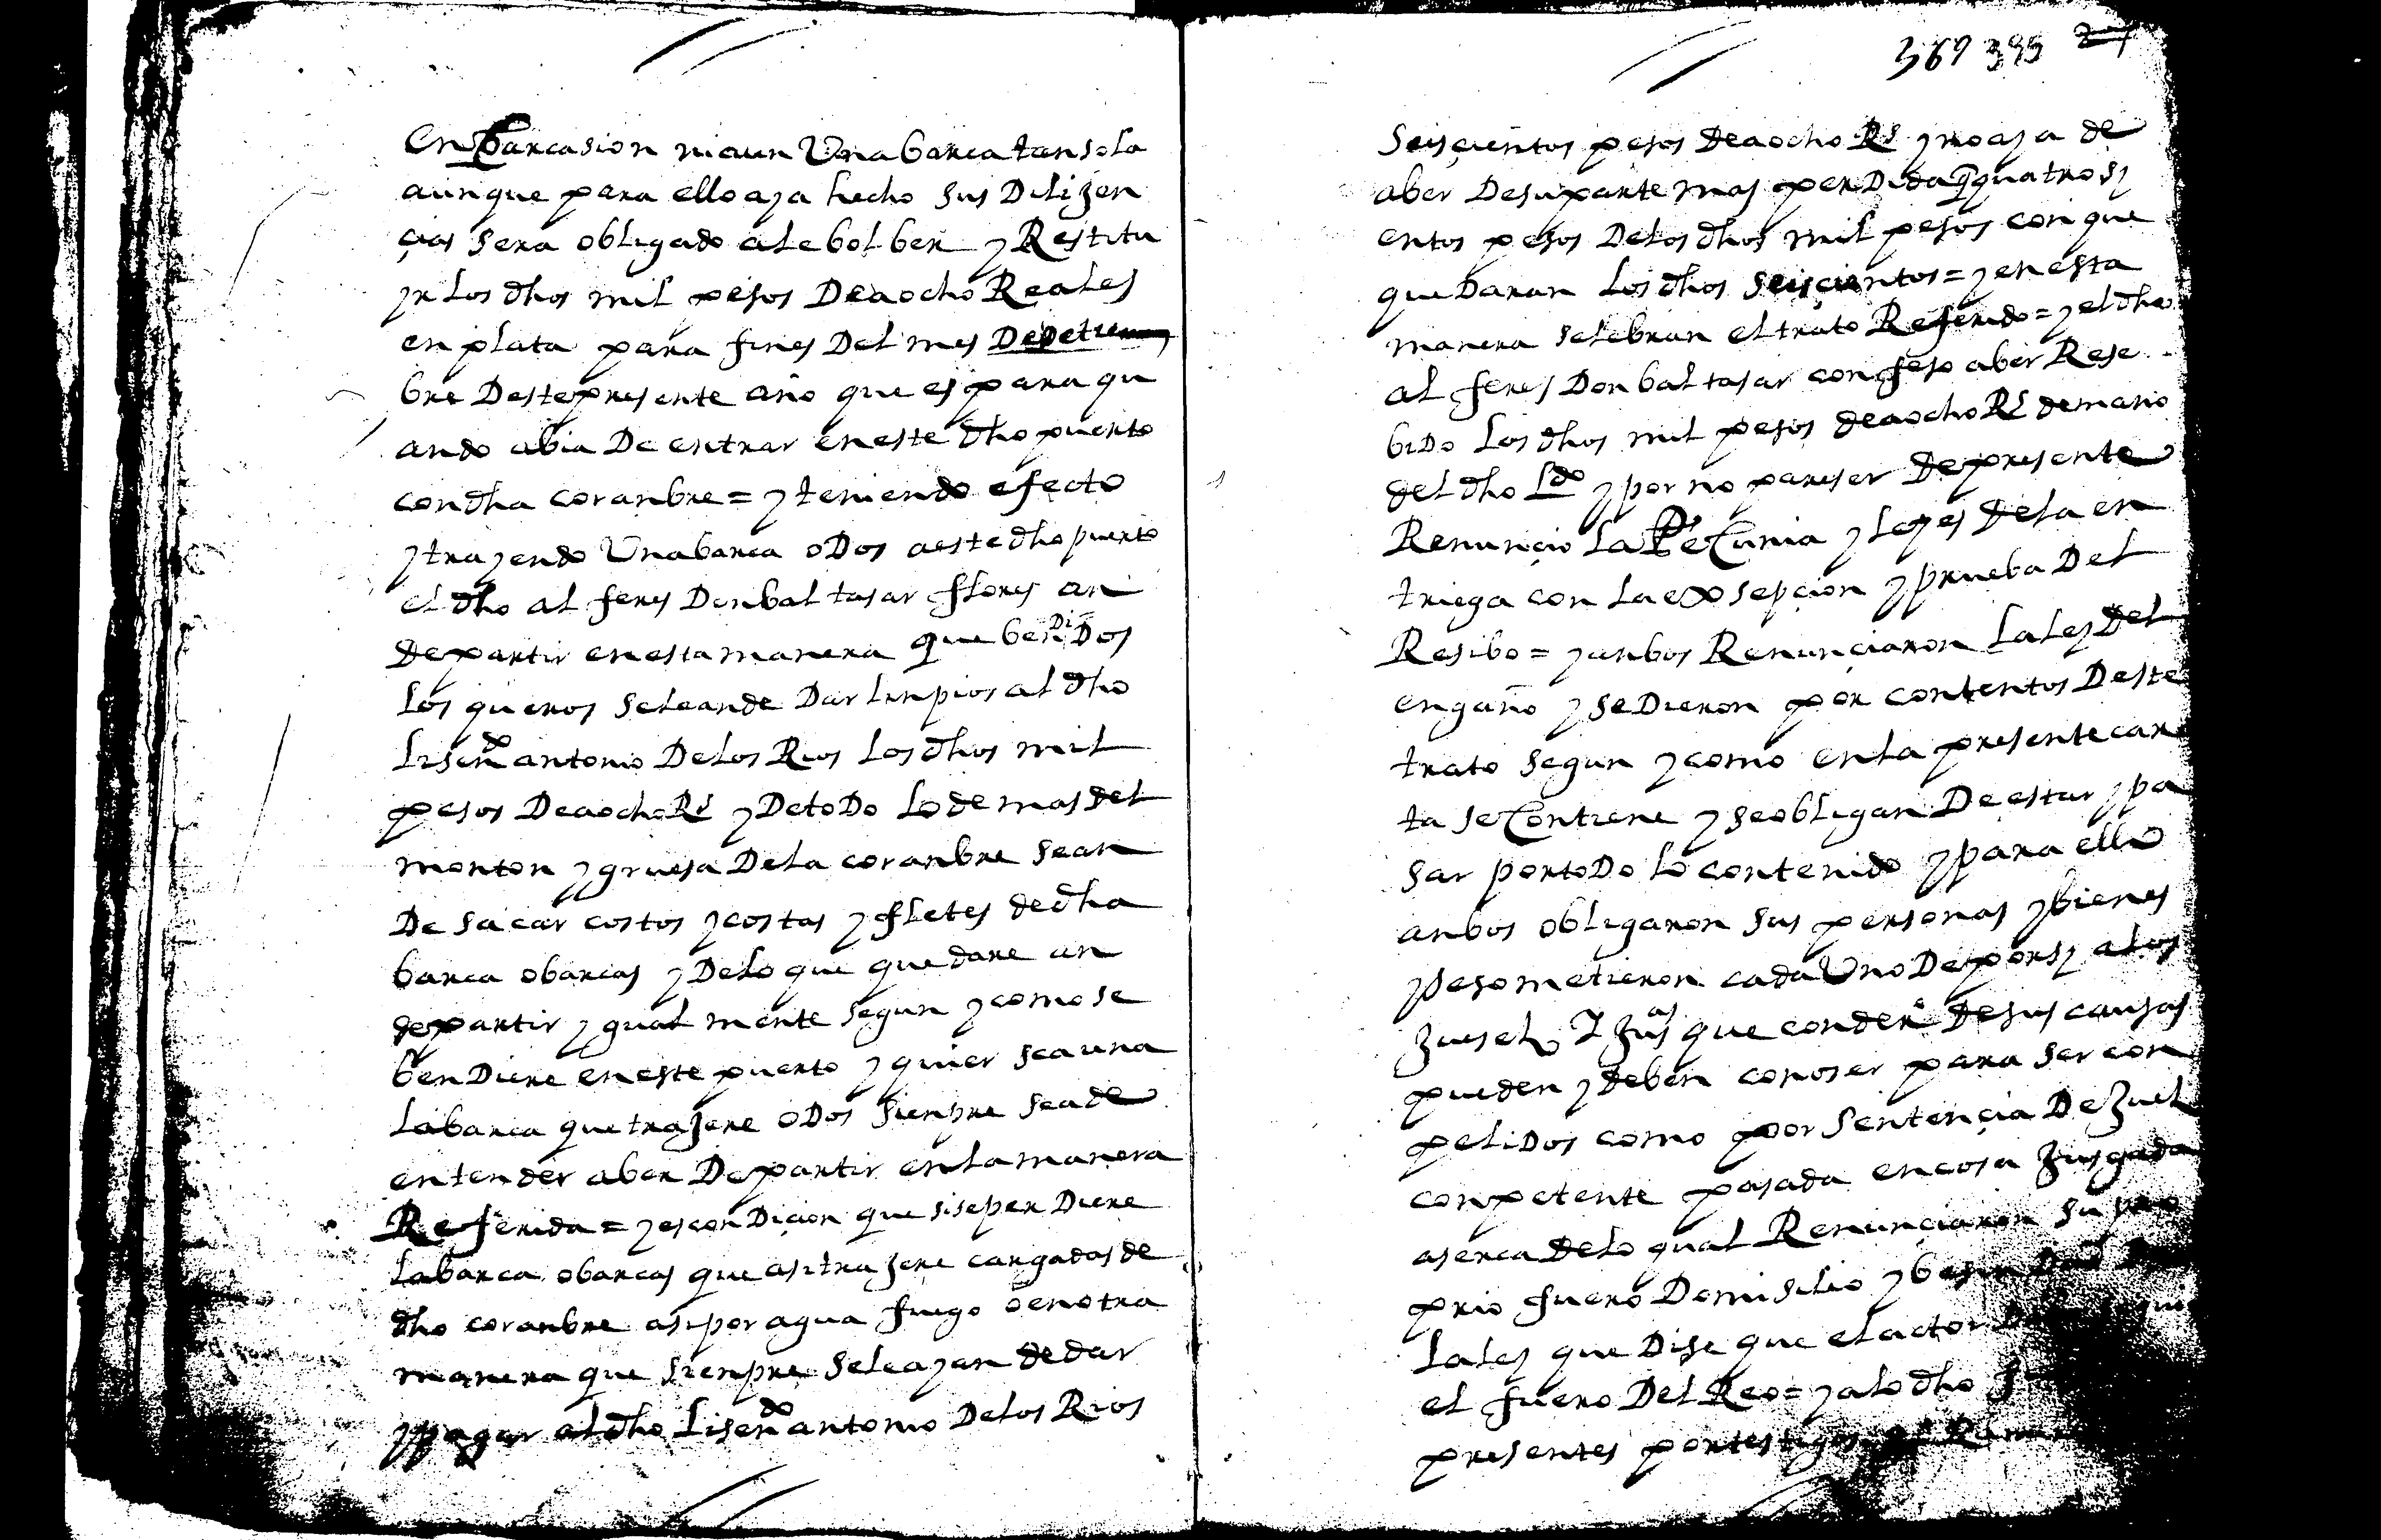 enbarcasion ni aun Una barca tan sola
aunque para ello aya hecho sus Dilijen
çias sera obligado a le bolber y Restitu
yr los dhos mil pesos De a ocho Reales
en plata para fines Del mes De
bre Deste presente año que es para qu
ando abia De entrar en este dho puerto
con dha coranbre = y teniendo efecto
y trayendo Una barca o Dos a este dho puerto
el dho alferes Don baltasar flores an
De partir en esta manera que benDiDos
los queros se le an de Dar linpios al dho
Lisendo antonio De los Rios los dhos mil
pesos De a ocho Rs y De toDo lo demas del
monton y gruesa De la coranbre se an
De sacar costos y costas y fletes de dha
barca o barcas y De lo que quedare an
de partir ygualmente segun y como se
benDiere en este puerto y quier sea una
la barca que trajere o Dos sienpre se a de
entender aber De partir en la manera
Referida = y es conDiçion que si se perDiere
la barca o barcas que asi trajere cargadas de
dho coranbre asi por agua fuego o en otra
manera que sienpre se le ayan de dar
y pagar al dho Lisendo antonio De los Rios
369 395 27
Seisçientos pesos De a ocho Rs y no aya de
aber De su parte mas perDida q quatrosy
entos pesos De los dhos mil pesos con que
queDaran los dhos seisçientos = y en esta
manera selebran el trato Referido = y el dho
alferes Don baltasar confeso aber Rese
biDo los dhos mil pesos de a ocho Rs de mano
del dho Ldo y por no pareser De presente
Renunçio la Pecunia y leyes De la en
triega con la exsepçion y prueba Del
Resibo = y anbos Renunçiaron la ley Del
engaño y se Dieron por contentos Deste
trato segun y como en la presente car
ta se Contiene y se obligan De estar y pa
sar por toDo lo contenido y para ello
anbos obligaron sus personas y bienes
y se sometieron cada Uno De por sy a los
Jueses y Jusas que con dero De sus causas
pueden y deben conoser para ser con
peliDos como por sentençia De Jues
conpetente pasada en cosa Jusgada
aserca De lo qual Renunçiaron su pro
prio fuero Domisilio y besinDad
la ley que Dise que el actor
el fuero Del Reo = y a lo dho
presentes por testigos